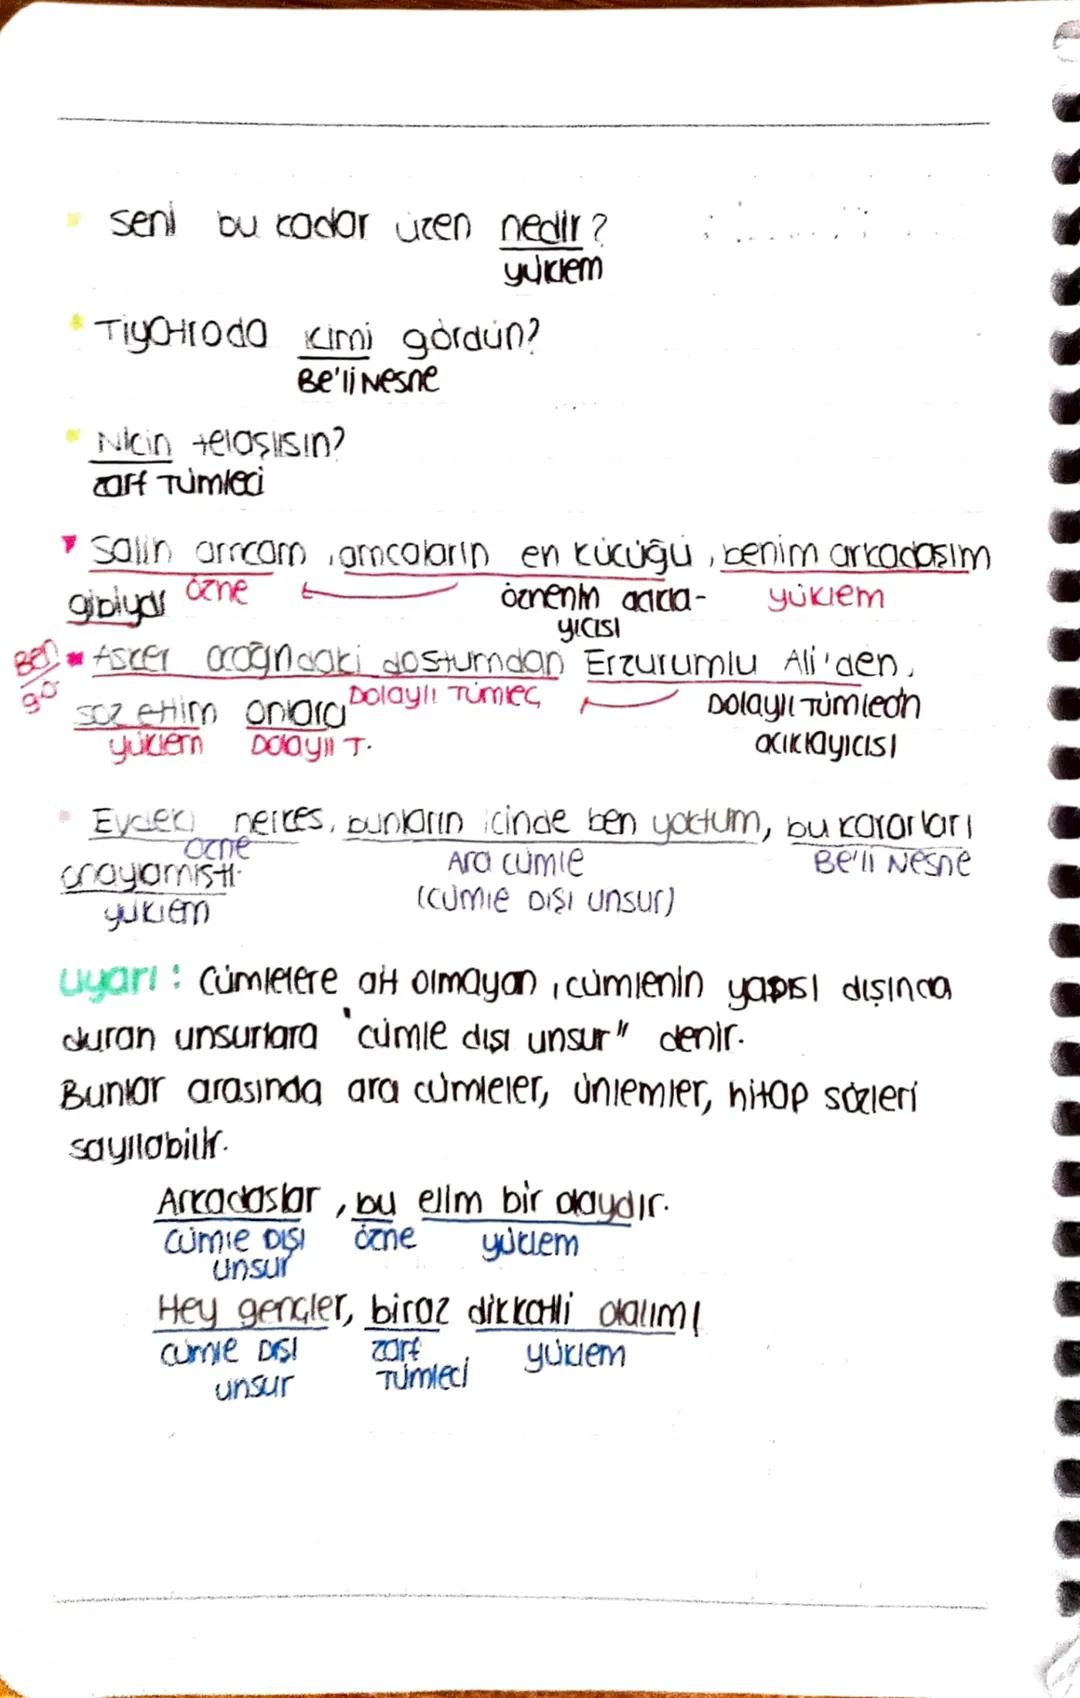 seni bu kadar üzen nedir?
yüklem
Tiyatroda kimi gördün?
Be'li Nesne
Niçin telaşlısın?
zarf Tümleci
Salih amcam, amcaların en küçüğü, benim arkadaşım
gibiydi özne öznenin açıkla- yüklem
yıcısı
Ben Asker ocağındaki dostumdan Erzurumlu Ali'den,
gö söz ettim onlara Dolaylı Tümleç Dolaylı Tümlecin
yüklem Dolaylı T. açıklayıcısı
Evdeki herkes, bunların içinde ben yoktum, bu kararları
özne Ara cümle Be'li Nesne
onayamıştı.
yüklem (cümle DIŞI unsur)
uyarı: Cümlelere ait olmayan, cümlenin yapısı dışında
duran unsurlara "cümle dışı unsur" denir.
Bunlar arasında ara cümleler, ünlemler, hitap sözleri
sayılabilir.
Arkadaşlar, bu elim bir olaydır.
cümle DIŞI özne yüklem
unsur
Hey gençler, biraz dikkatli olalım!
cümle DIŞI zarf yüklem
unsur Tümleci